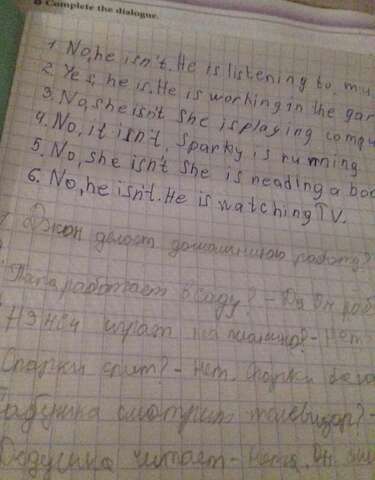 8 Complete the dialogue.
1. No, he isn't. He is listening to mu
2. Yes, he is. He is working in the gar
3. No, she isn't she is playing compu
4. No, it isn't, Sparky is running
5. No, she isn't she is reading a boo
6. No, he isn't. He is watching TV.
Джон делает домашнюю работу?
Папа работает в саду? - Да Он раб
Нэнси играт на пианино? - Нет
Спарки спит? - Нет, Спарки бега
Бабушка смотрит телевизор? -
Дедушка читает - Нет, Он